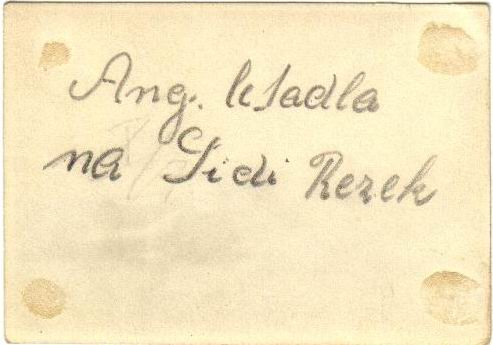 Ang. letadla
na Sidi Rezek